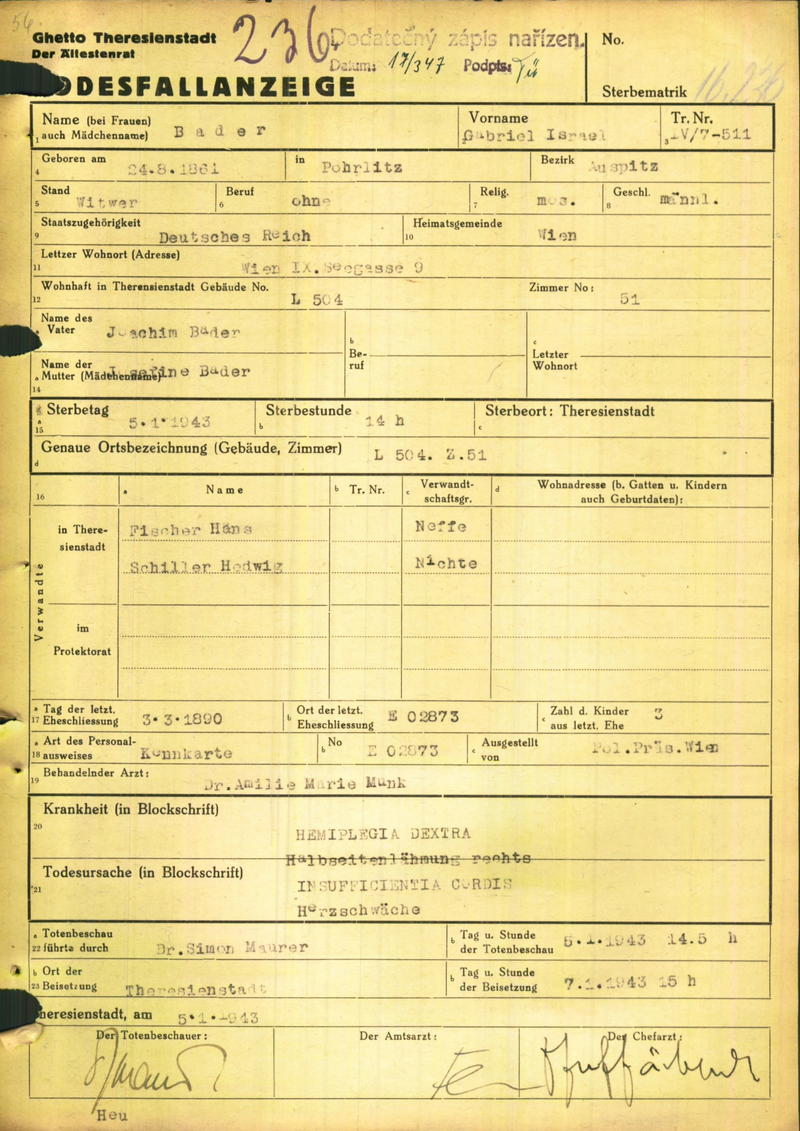 56
Ghetto Theresienstadt
Der Ältestenrat
236
Dodatečný zápis nařízen.
Datum: 17/3 47 Podpis:
No.
DESFALLANZEIGE
Sterbematrik
Name (bei Frauen) auch Mädchenname) Bader
Vorname Gabriel Israel
Tr. Nr. IV/7-511
1
3
Geboren am 24.8.1861 in Pohrlitz Bezirk Auspitz
4
Stand Witwer Beruf ohne Relig. mos. Geschl. männl.
5 6 7 8
Staatszugehörigkeit Deutsches Reich Heimatsgemeinde Wien
9 10
Lettzer Wohnort (Adresse)
11 Wien IX.Seegasse 9
Wohnhaft in Therensienstadt Gebäude No. L 504 Zimmer No: 51
12
Name des
a Vater Joachim Bader
b
Be-
ruf
c
Letzter
Wohnort
Name der
a Mutter (Mädchenname) Josefine Bader
14
Sterbetag 5.1.1943 Sterbestunde 14 h Sterbeort: Theresienstadt
a 15 b c
Genaue Ortsbezeichnung (Gebäude, Zimmer) L 504. Z.51
d
16 a Name b Tr. Nr. c Verwandt-
schaftsgr. d Wohnadresse (b. Gatten u. Kindern
auch Geburtdaten):
Verwandte
in There-
sienstadt
Fischer Hans Neffe
Schiller Hedwig Nichte
im
Protektorat
a Tag der letzt.
17 Eheschliessung 3.3.1890
b Ort der letzt.
Eheschliessung E 02873
c Zahl d. Kinder
aus letzt. Ehe 3
a Art des Personal-
18 ausweises Kennkarte
b No E 02873
c Ausgestellt
von Pol.Präs.Wien
Behandelnder Arzt:
19 Dr.Amilie Marie Munk
Krankheit (in Blockschrift)
20
HEMIPLEGIA DEXTRA
Halbseitenlähmung rechts
Todesursache (in Blockschrift)
21
INSUFFICIENTIA CORDIS
Herzschwäche
a Totenbeschau
22 führte durch Dr.Simon Maurer
b Tag u. Stunde
der Totenbeschau 5.1.1943 14.5 h
b Ort der
23 Beisetzung Theresienstadt
b Tag u. Stunde
der Beisetzung 7.1.1943 15 h
heresienstadt, am 5.1.1943
Der Totenbeschauer: Der Amtsarzt: Der Chefarzt:
Heu